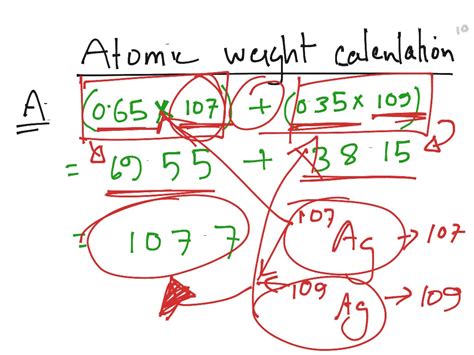 10
Atomic weight calculation
A (0.65 x 107) + (0.35 x 109)
= 69.55 + 38.15
= 107.7
107 Ag → 107
109 Ag → 109